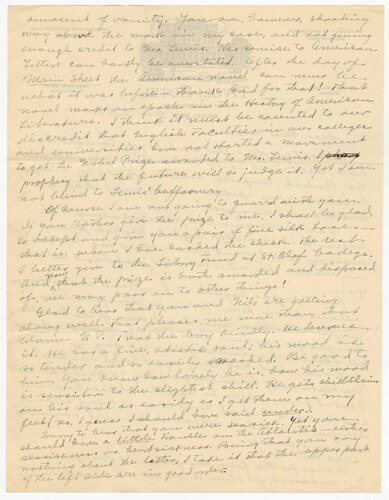 amount of vanity. You are, however, shooting
way above the mark in my case, and not giving
enough credit to Mr. Lewis. His service to American
letters can hardly be overstated. After the day of
Main Street the American novel can never be
what it was before — thank God for that! That
novel makes an epoch in the History of American
Literature. I think it must be counted to our
discredit that English Faculties in our colleges
and universities have not started a movement
to get the Nobel Prize awarded to Mr. Lewis. I
prophesy that the future will so judge it. Yet I am
not blind to Lewis' buffoonery.
Of course I am not going to quarrel with you.
If you rather give the prize to me, I shall be glad
to accept and give you a pair of fine silk hose —
that is: when I have cashed the check. The rest
I better give to the Library Fund at St. Olaf College.
And now that the prize is both awarded and disposed
of, we may pass on to other things!
Glad to hear that you and Nils are getting
along well. That pleases me more than about
Treat the boy kindly. He deserves
it. He has a fine, artistic soul, his mood is
so tender and so easily. Be good to
him. You know how lonely he is, how his mood
is sensitive to the slightest chill. He gets chillblains
on his soul as easily as I get them on my
feet (no, I guess I should have said under).
Sorry to hear that you were seasick. Yet you
should have a little trouble on the Atlantic — either
seasickness or heartsickness. Being that you say
nothing about the latter, I take it that the upper part
of the left side are in good order.